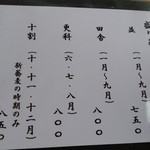 並 (一月～九月) 七五〇
田舎 (一月～九月) 八〇〇
更科 (六・七・八月) 八〇〇
十割 (十・十一・十二月) 八五〇
新蕎麦の時期のみ